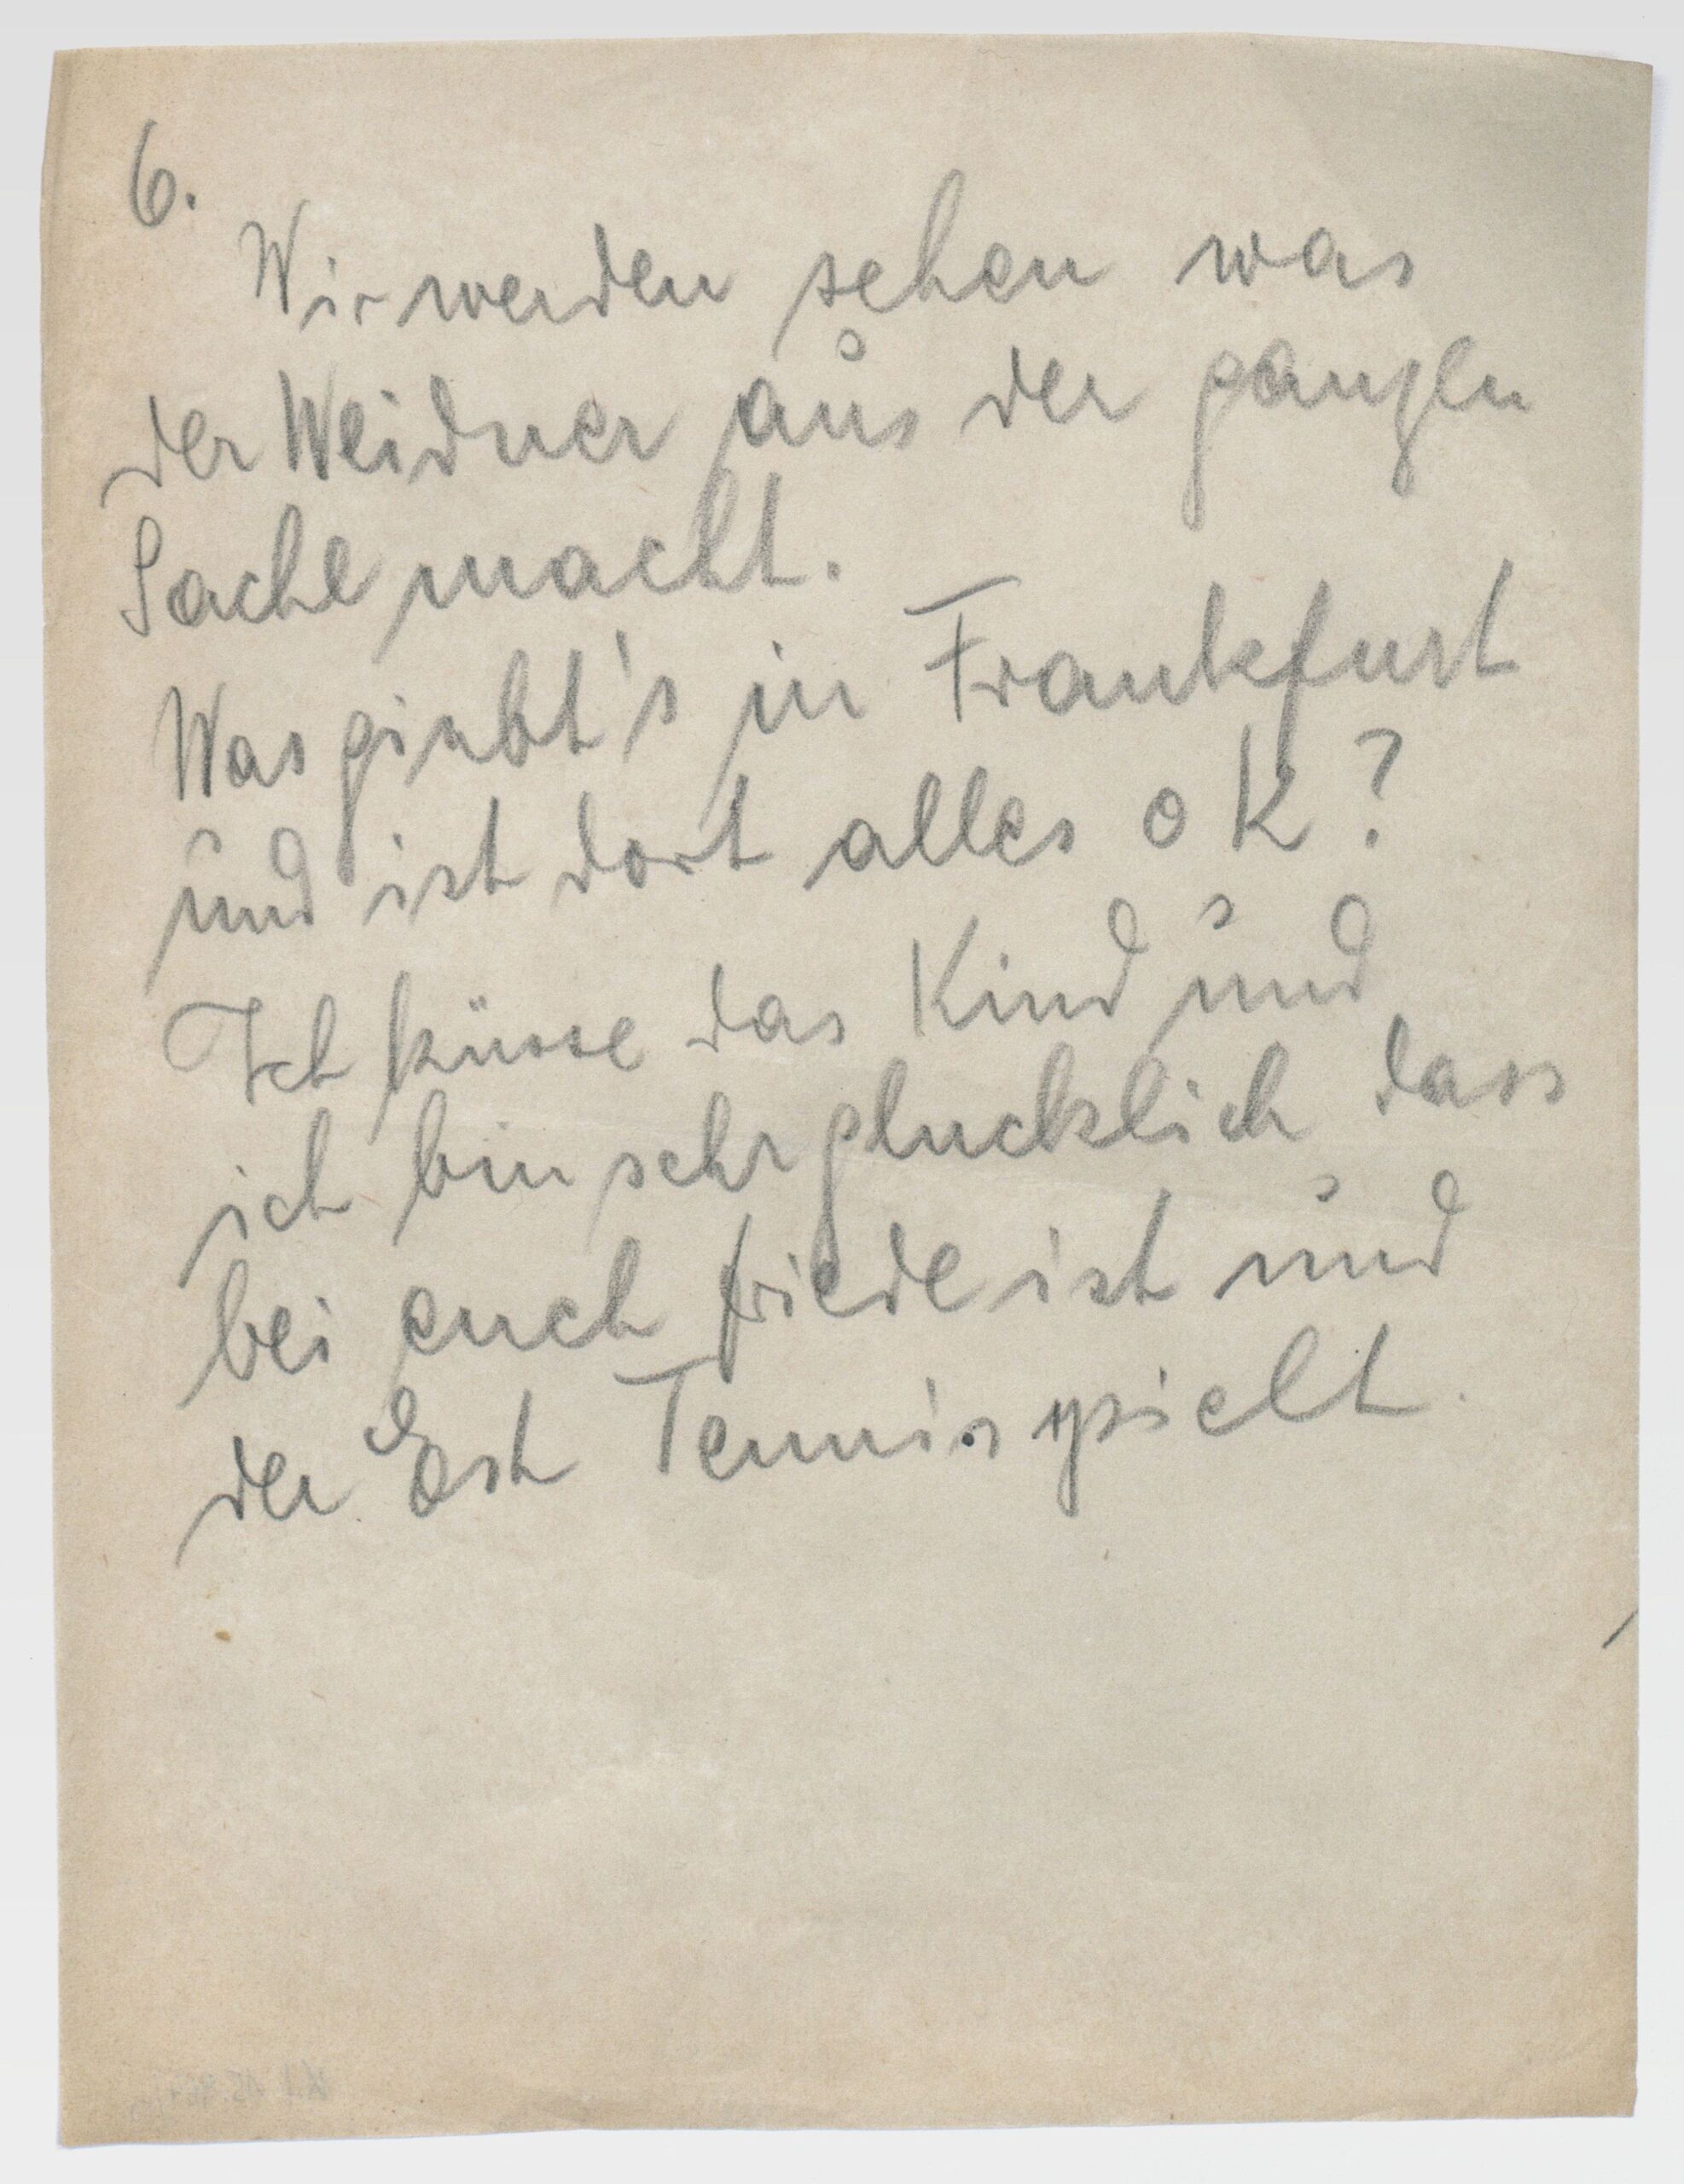 6.
Wir werden sehen was
der Weidner aus der ganzen
Sache macht.
Was giebt's in Frankfurt
und ist dort alles ok?
Ich küsse das Kind und
ich bin sehr glucklich dass
bei euch friede ist und
der Tennis spielt.